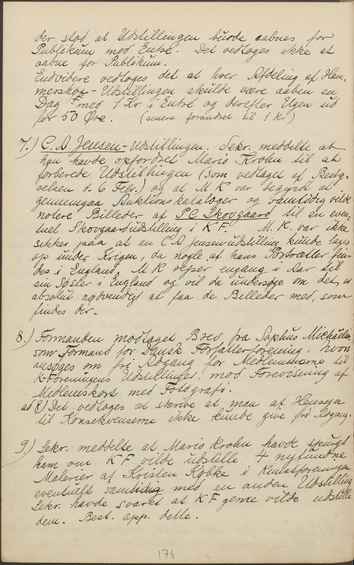 der slod at Udstillingen burde aabnes for
Publikum mod Entré. Det vedtoges ikke at
aabne for Publikum.
Endvidere vedtoges det at hver Afdeling af Ham-
mershøi-Udstillingen skulde være aaben en
Dag med 1 Kr i Entré og derefter Igen ud
for 50 Øre. (senere forandret til 1 Kr)
7.) C. A Jensen-Udstillingen. Sekr. meddelte at
han havde opfordret Mario Krohn til at
forberede Udstillingen (som vedtaget af Besty-
relsen d. 6 Febr.) og at M K var begyndt at
gennemgaa Auktionskataloger og samtidig vilde
notere Billeder af P. C. Skovgaard til en even-
tuel Skovgaardudstilling i K F. M. K. var ikke
sikker paa at en C A Jensenudstilling kunde laves
op under Krigen, da nogle af hans Portrætter fin-
des i England. M K rejser engang i Aar til
en Søster i England og vil da undersøge om det er
absolut nødvendigt at faa de Billeder med, som
findes der.
8.) Formanden modtaget Brev fra Sophus Michaëlis
som Formand for Dansk Forfatterforening, hvori
ansøges om fri Adgang for Medlemmerne til
K-foreningens Udstillinger mod Forevisning af
Medlemskort med Fotografi.
ad 8) Det vedtoges at skrive at man af Hensyn
til Konsekvenserne ikke kunde give fri Adgang.
9.) Sekr. meddelte at Mario Krohn havde spurgt
ham om K F vilde udstille 4 nyfundne
Malerier af Kristen Købke i Kunstforeningen
eventuelt samtidig med en anden Udstilling
Sekr. havde svaret at K F gerne vilde udstille
dem. Best. app. dette.
174